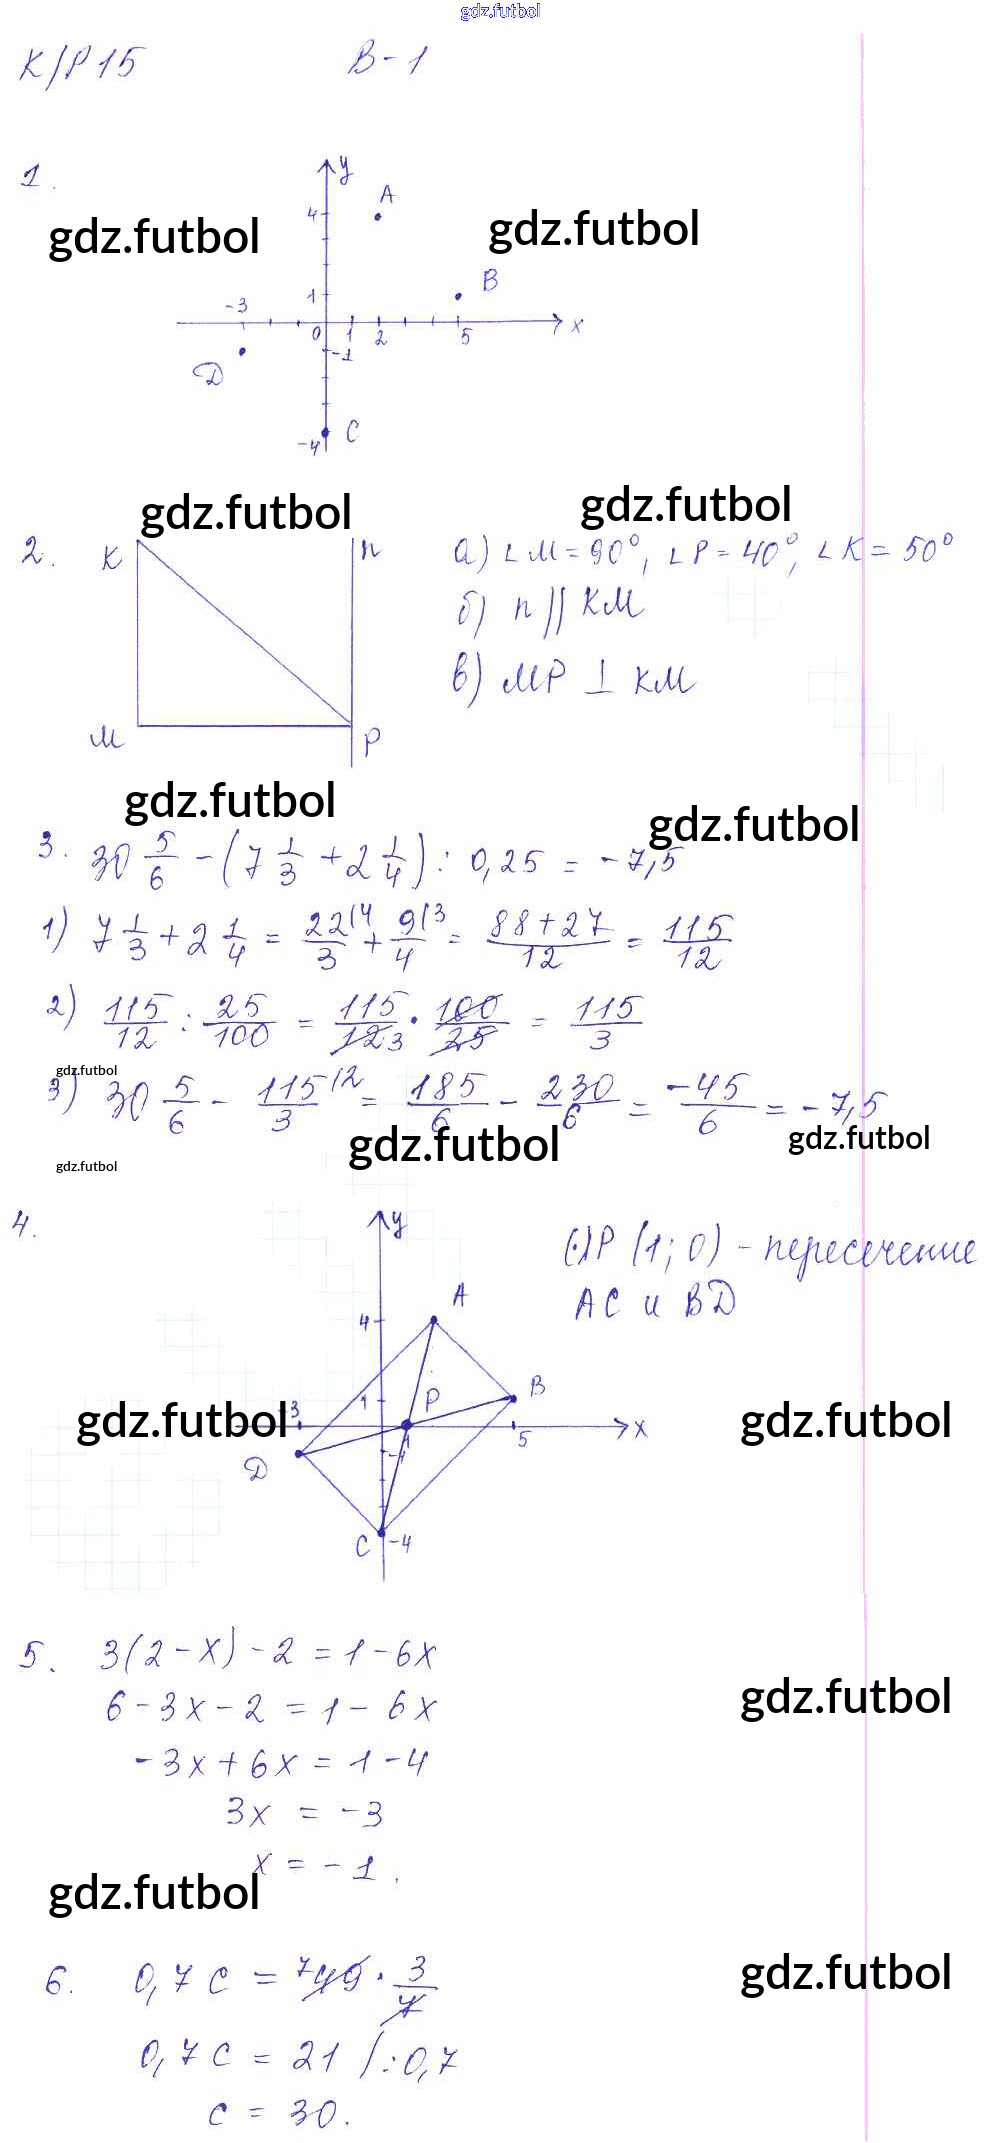 gdz.futbol
К/Р 15 В-1
1.
y
A
4
gdz.futbol gdz.futbol
B
-3 1
0 1 2 5 x
-1
D
-4 C
gdz.futbol gdz.futbol
2. K n а) ∠M = 90°, ∠P = 40°, ∠K = 50°
б) n || KM
в) MP ⊥ KM
M P
gdz.futbol gdz.futbol
3. 30 5/6 - (7 1/3 + 2 1/4) : 0,25 = -7,5
1) 7 1/3 + 2 1/4 = 22/3 (4 + 9/4 (3 = (88+27)/12 = 115/12
2) 115/12 : 25/100 = 115/12 3 · 100/25 = 115/3
gdz.futbol
3) 30 5/6 - 115/3 (2 = 185/6 - 230/6 = -45/6 = -7,5
gdz.futbol gdz.futbol
gdz.futbol
4. y (·)P (1; 0) - пересечение
AC и BD
A
4
1 P B
gdz.futbol 3 gdz.futbol
1 5 x
-1
D
C -4
5. 3(2-x)-2 = 1-6x
gdz.futbol
6-3x-2 = 1-6x
-3x+6x = 1-4
3x = -3
x = -1.
gdz.futbol
gdz.futbol
6. 0,7c = 7 49 · 3/7
0,7c = 21 /:0,7
c = 30.